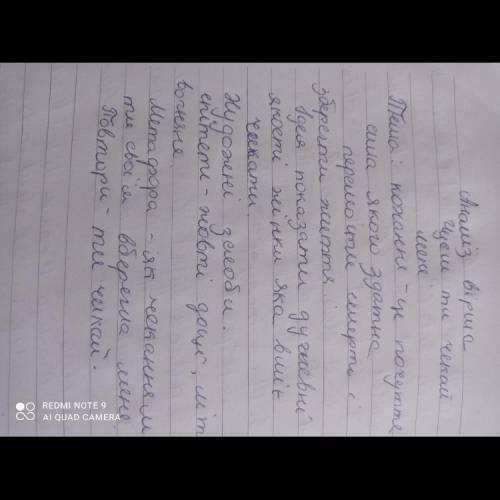 Аналіз вірша
Чуєш ти чекай
мене
Тема: кохання - це почуття
сила якого здатна
перемогти смерть і
зберегти життя.
Ідея показати душевні
якості жінки яка вміє
чекати.
Художні засоби.
епітети - жовті дощі, міт
вогняне.
Метафора - як чеканням
ти своїм вберегла мене
Повтори - ти чекай.
REDMI NOTE 9
AI QUAD CAMERA